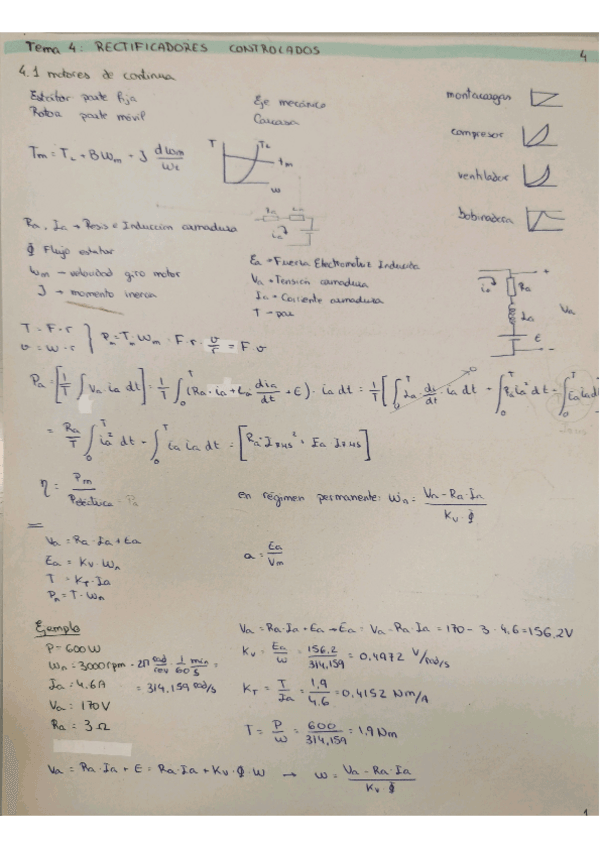 Tema 4: RECTIFICADORES CONTROLADOS
4
4.1 motores de continua
Estator parte fija
Rotor parte móvil
Eje mecánico
Carcasa
montacargas
compresor
ventilador
bobinadora
Tm = TL + BWm + J dWm/Wt
T
TL
Tm
w
Ra, La → Resis e Inducción armadura
Ra La
ia
Φ Flujo estator
Wm — velocidad giro motor
J → momento inercia
Ea → Fuerza Electromotriz Inducida
Va → Tensión armadura
Ia → Corriente armadura
T → par
+
ia
Ra
La
E
-
Va
T = F · r
v = w · r
Pm = Tm Wm = F · r · v/r = F v
Pa = [1/T ∫ Va ia dt] = 1/T ∫₀ᵀ (Ra · ia + La dia/dt + E) · ia dt = 1/T [∫₀ᵀ La · di/dt · ia dt + ∫₀ᵀ Ra ia² dt + ∫₀ᵀ Ea ia dt
0
= Ra/T ∫₀ᵀ ia² dt + ∫₀ᵀ Ea ia dt = [Ra · I RMS² + Ea IRMS]
η = Pm / Peléctrica · Pa
en régimen permanente: Wm = Va - Ra · Ia / Kv · Φ
Va = Ra · Ia + Ea
Ea = Kv · Wm
T = KT · Ia
Pm = T · Wm
a = Ea/Vm
Ejemplo
P = 600 W
Wn = 3000 rpm · 2π rad/rev · 1/60 min/s =
= 314,159 rad/s
Ia = 4.6A
Va = 170V
Ra = 3 Ω
Va = Ra · Ia + Ea → Ea = Va - Ra · Ia = 170 - 3 · 4,6 = 156,2V
Kv = Ea/w = 156,2/314,159 = 0,4972 V/rad/s
KT = T/Ia = 1,9/4.6 = 0,4152 Nm/A
T = P/w = 600/314,159 = 1,9 Nm
Va = Ra · Ia + E = Ra · Ia + Kv · Φ · w → w = Va - Ra · Ia / Kv · Φ
1